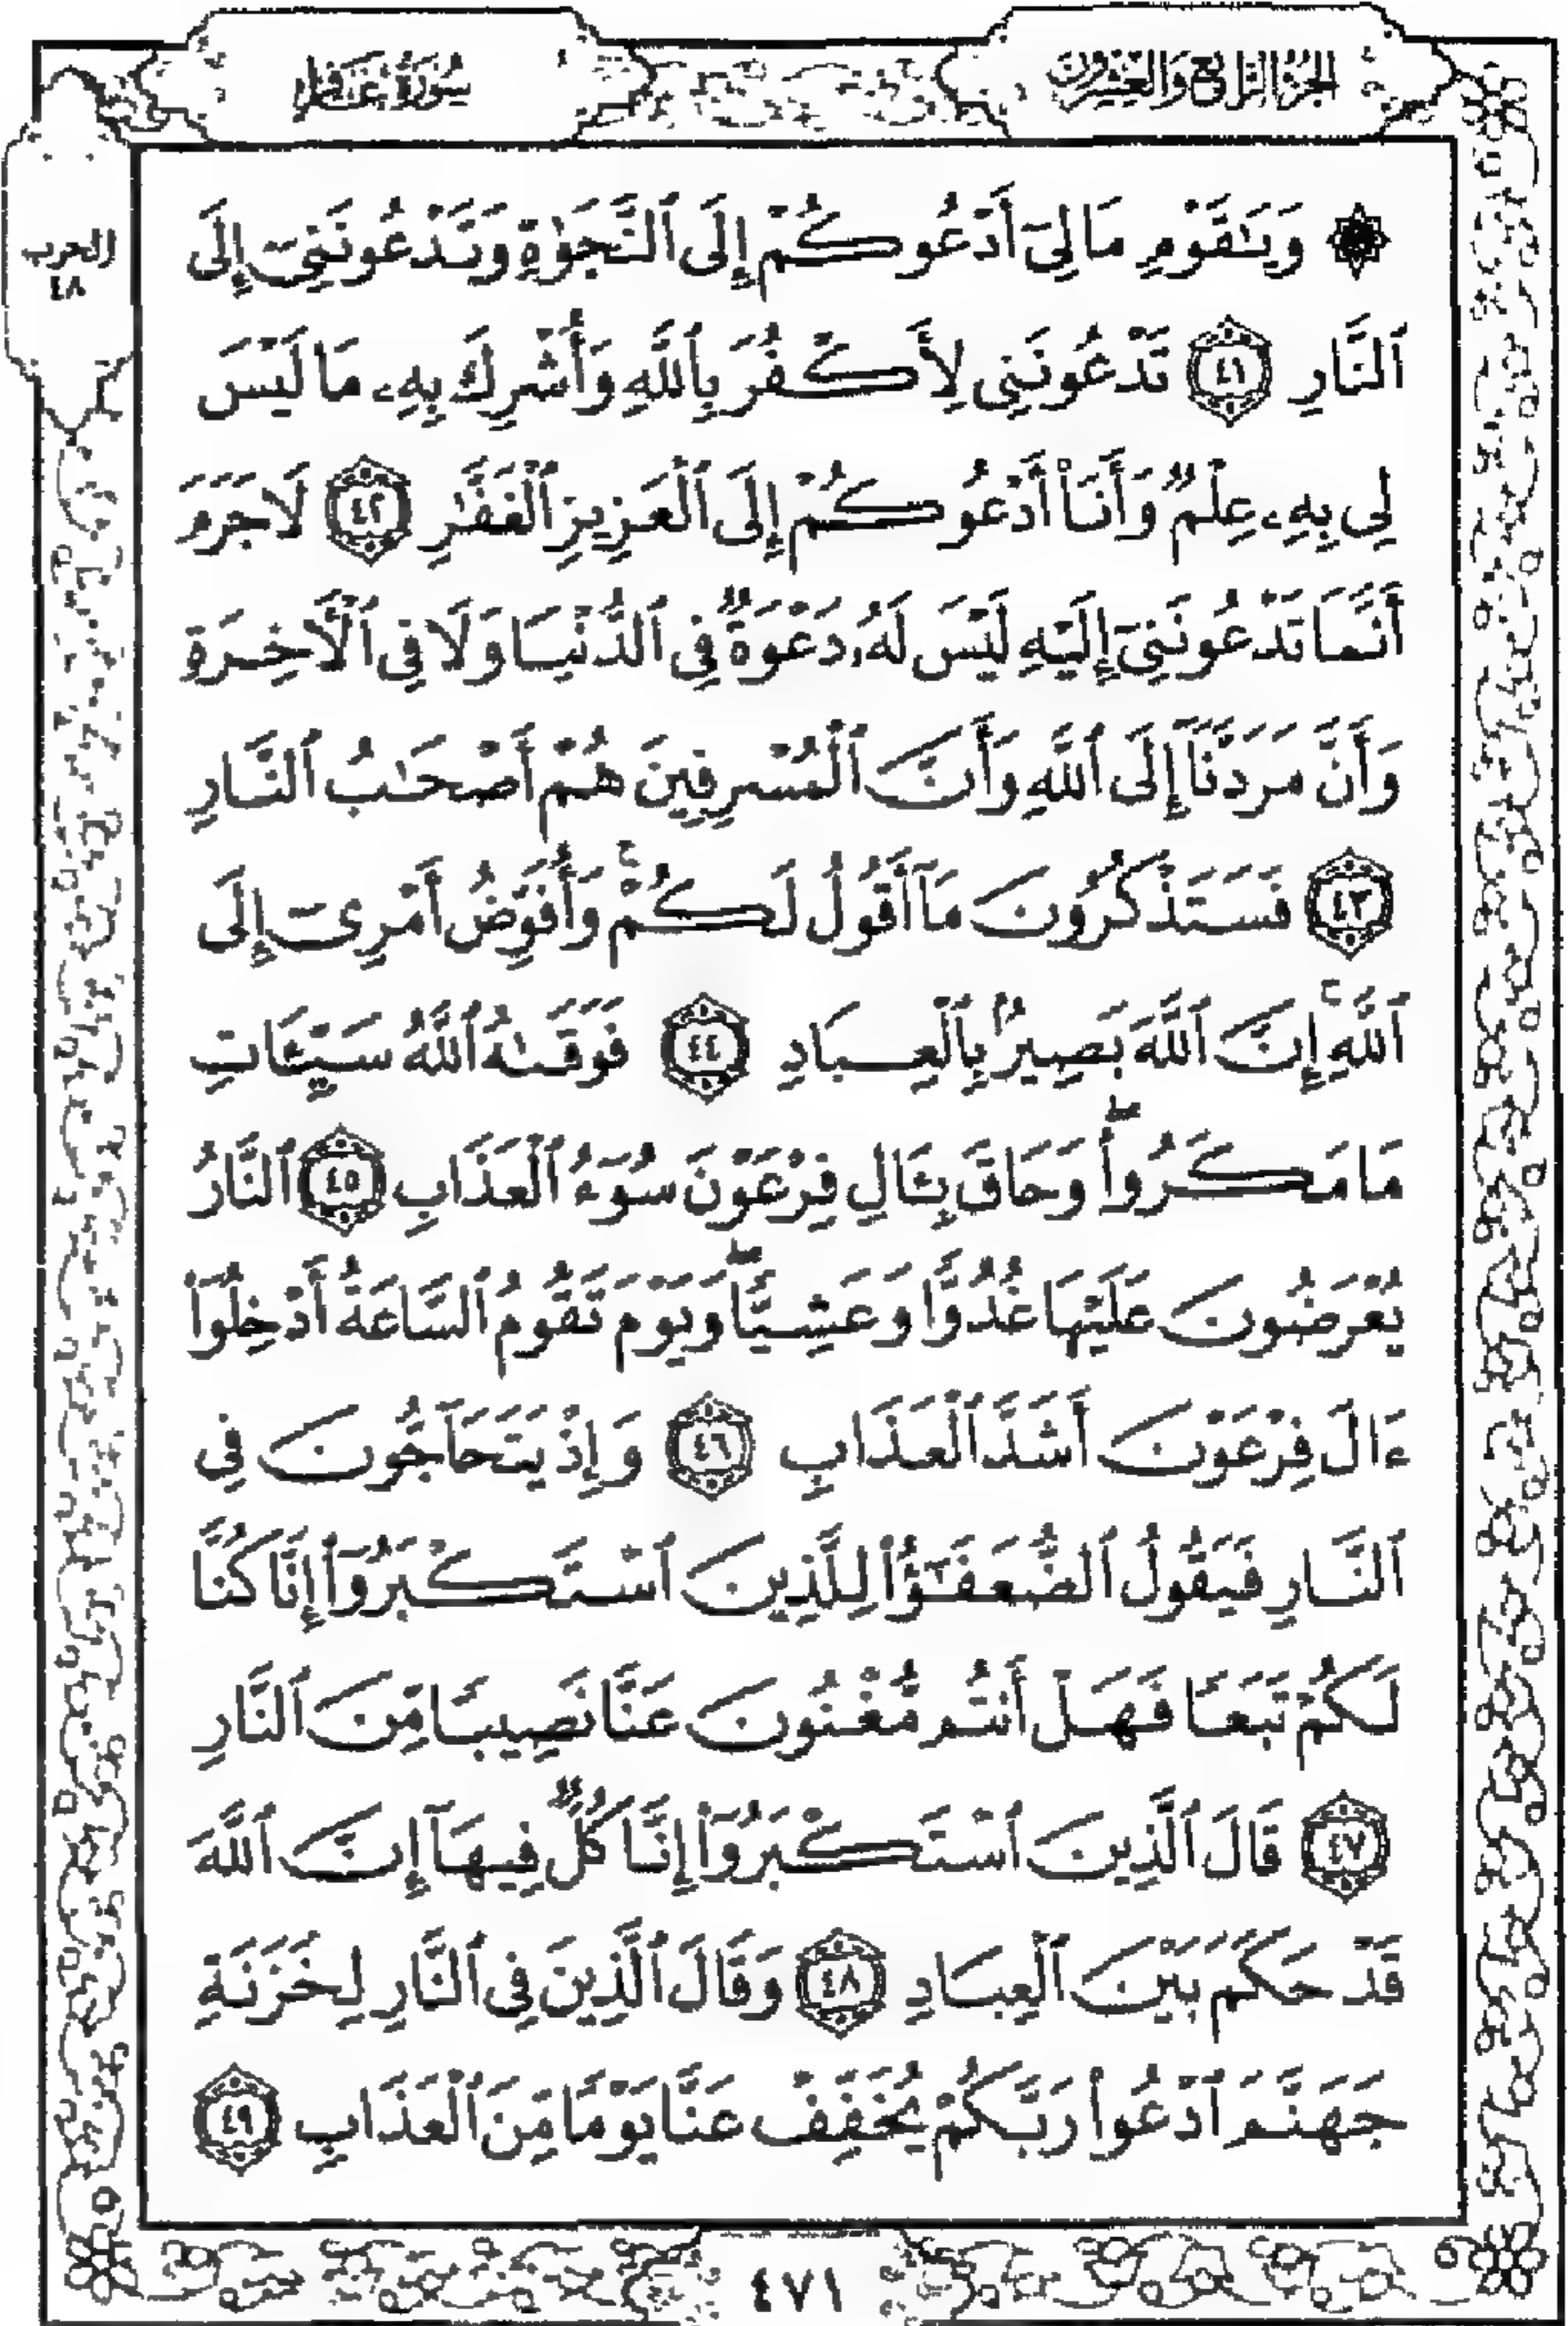 الجزء الرابع والعشرون
سورة غافر
الحزب
٤٨
۞ وَيَٰقَوْمِ مَا لِيٓ أَدْعُوكُمْ إِلَى ٱلنَّجَوٰةِ وَتَدْعُونَنِيٓ إِلَى
ٱلنَّارِ ٤١ تَدْعُونَنِي لِأَكْفُرَ بِٱللَّهِ وَأُشْرِكَ بِهِۦ مَا لَيْسَ
لِي بِهِۦ عِلْمٌ وَأَنَا۠ أَدْعُوكُمْ إِلَى ٱلْعَزِيزِ ٱلْغَفَّٰرِ ٤٢ لَا جَرَمَ
أَنَّمَا تَدْعُونَنِيٓ إِلَيْهِ لَيْسَ لَهُۥ دَعْوَةٌ فِي ٱلدُّنْيَا وَلَا فِي ٱلْأَخِرَةِ
وَأَنَّ مَرَدَّنَآ إِلَى ٱللَّهِ وَأَنَّ ٱلْمُسْرِفِينَ هُمْ أَصْحَٰبُ ٱلنَّارِ
٤٣ فَسَتَذْكُرُونَ مَآ أَقُولُ لَكُمْۚ وَأُفَوِّضُ أَمْرِيٓ إِلَى
ٱللَّهِۚ إِنَّ ٱللَّهَ بَصِيرٌۢ بِٱلْعِبَادِ ٤٤ فَوَقَىٰهُ ٱللَّهُ سَيِّـَٔاتِ
مَا مَكَرُوا۟ۖ وَحَاقَ بِـَٔالِ فِرْعَوْنَ سُوٓءُ ٱلْعَذَابِ ٤٥ ٱلنَّارُ
يُعْرَضُونَ عَلَيْهَا غُدُوًّا وَعَشِيًّاۖ وَيَوْمَ تَقُومُ ٱلسَّاعَةُ أَدْخِلُوٓا۟
ءَالَ فِرْعَوْنَ أَشَدَّ ٱلْعَذَابِ ٤٦ وَإِذْ يَتَحَآجُّونَ فِي
ٱلنَّارِ فَيَقُولُ ٱلضُّعَفَٰٓؤُا۟ لِلَّذِينَ ٱسْتَكْبَرُوٓا۟ إِنَّا كُنَّا
لَكُمْ تَبَعًا فَهَلْ أَنتُم مُّغْنُونَ عَنَّا نَصِيبًا مِّنَ ٱلنَّارِ
٤٧ قَالَ ٱلَّذِينَ ٱسْتَكْبَرُوٓا۟ إِنَّا كُلٌّ فِيهَآ إِنَّ ٱللَّهَ
قَدْ حَكَمَ بَيْنَ ٱلْعِبَادِ ٤٨ وَقَالَ ٱلَّذِينَ فِي ٱلنَّارِ لِخَزَنَةِ
جَهَنَّمَ ٱدْعُوا۟ رَبَّكُمْ يُخَفِّفْ عَنَّا يَوْمًا مِّنَ ٱلْعَذَابِ ٤٩
٤٧١